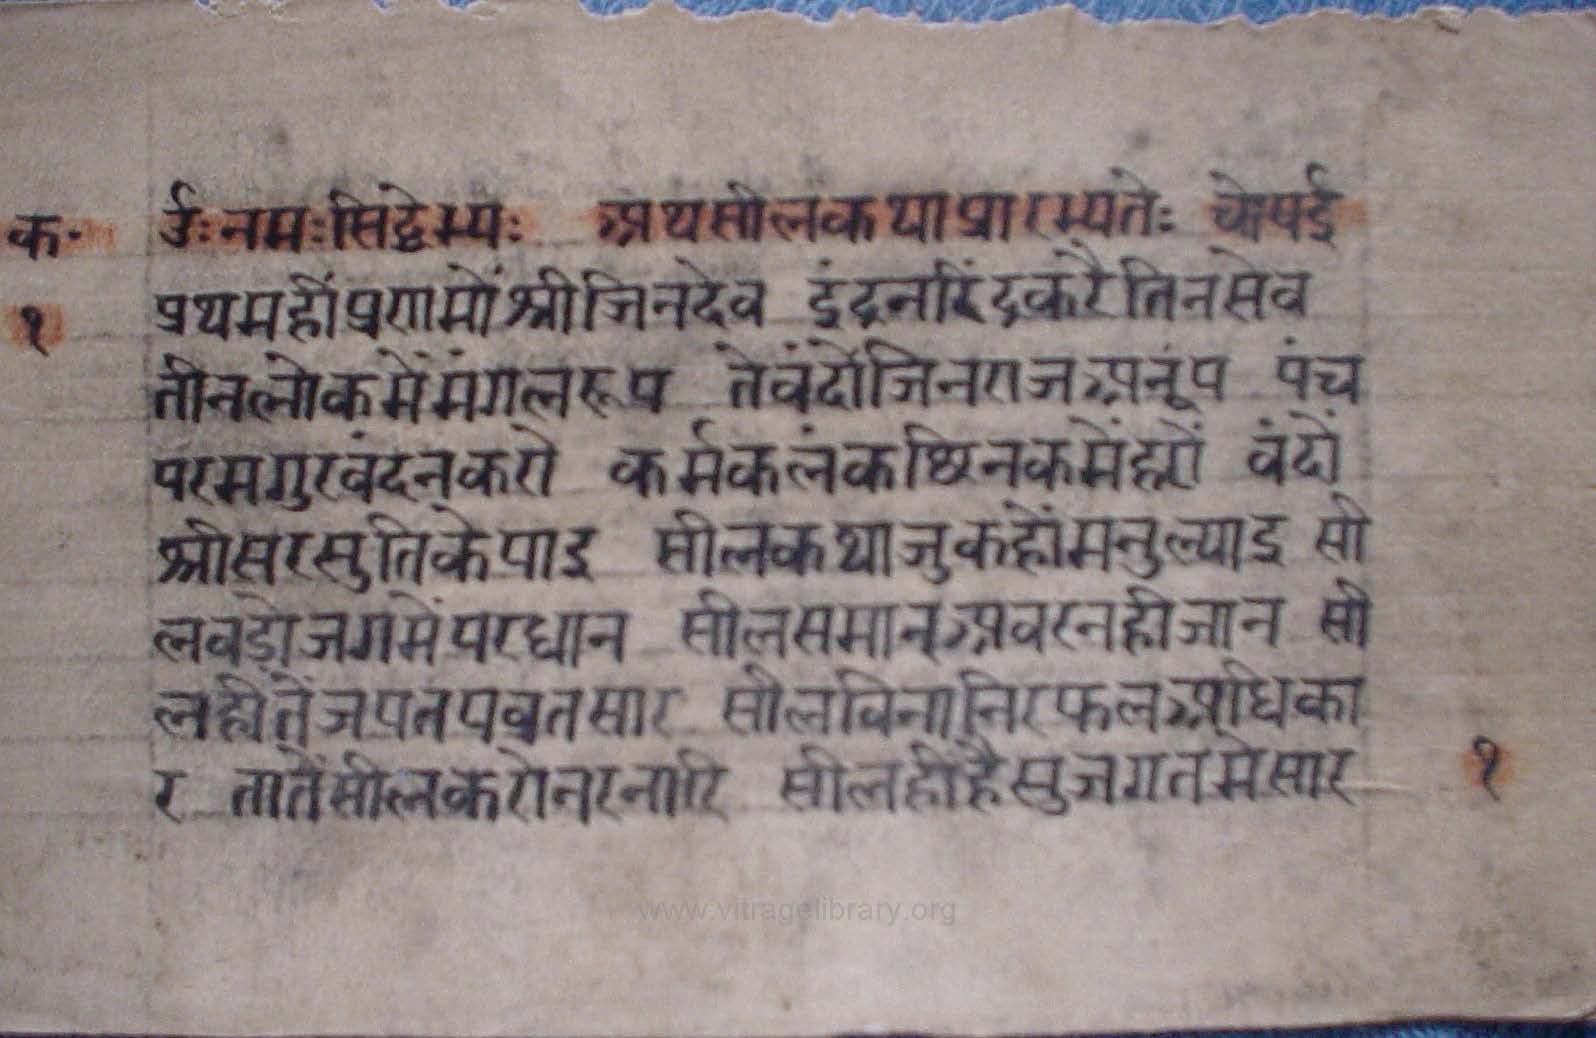 क॰ उंः नमः सिद्धेभ्यः अथसीलकथाप्रारभ्यतेः चोपई
१ प्रथमहींप्रणमोंश्रीजिनदेव इंद्रनरिंदकरैतिनसेव
तीनलोकमेंमंगलरूप तेवंदोंजिनराजअनूंप पंच
परमगुरवंदनकरो कर्मकलंकछिनकमेंहरों वंदों
श्रीसरसुतिकेपाइ सीलकथाजुकहोंमनुल्याइ सी
लवडोजगमेंपरधान सीलसमानअवरनहीजान सी
लहीतेंजपतपव्रतसार सीलविनानिरफलअधिका
र तातेंसीलकरोनरनारि सीलहीहैसुजगतमेसार १
www.vitragelibrary.org